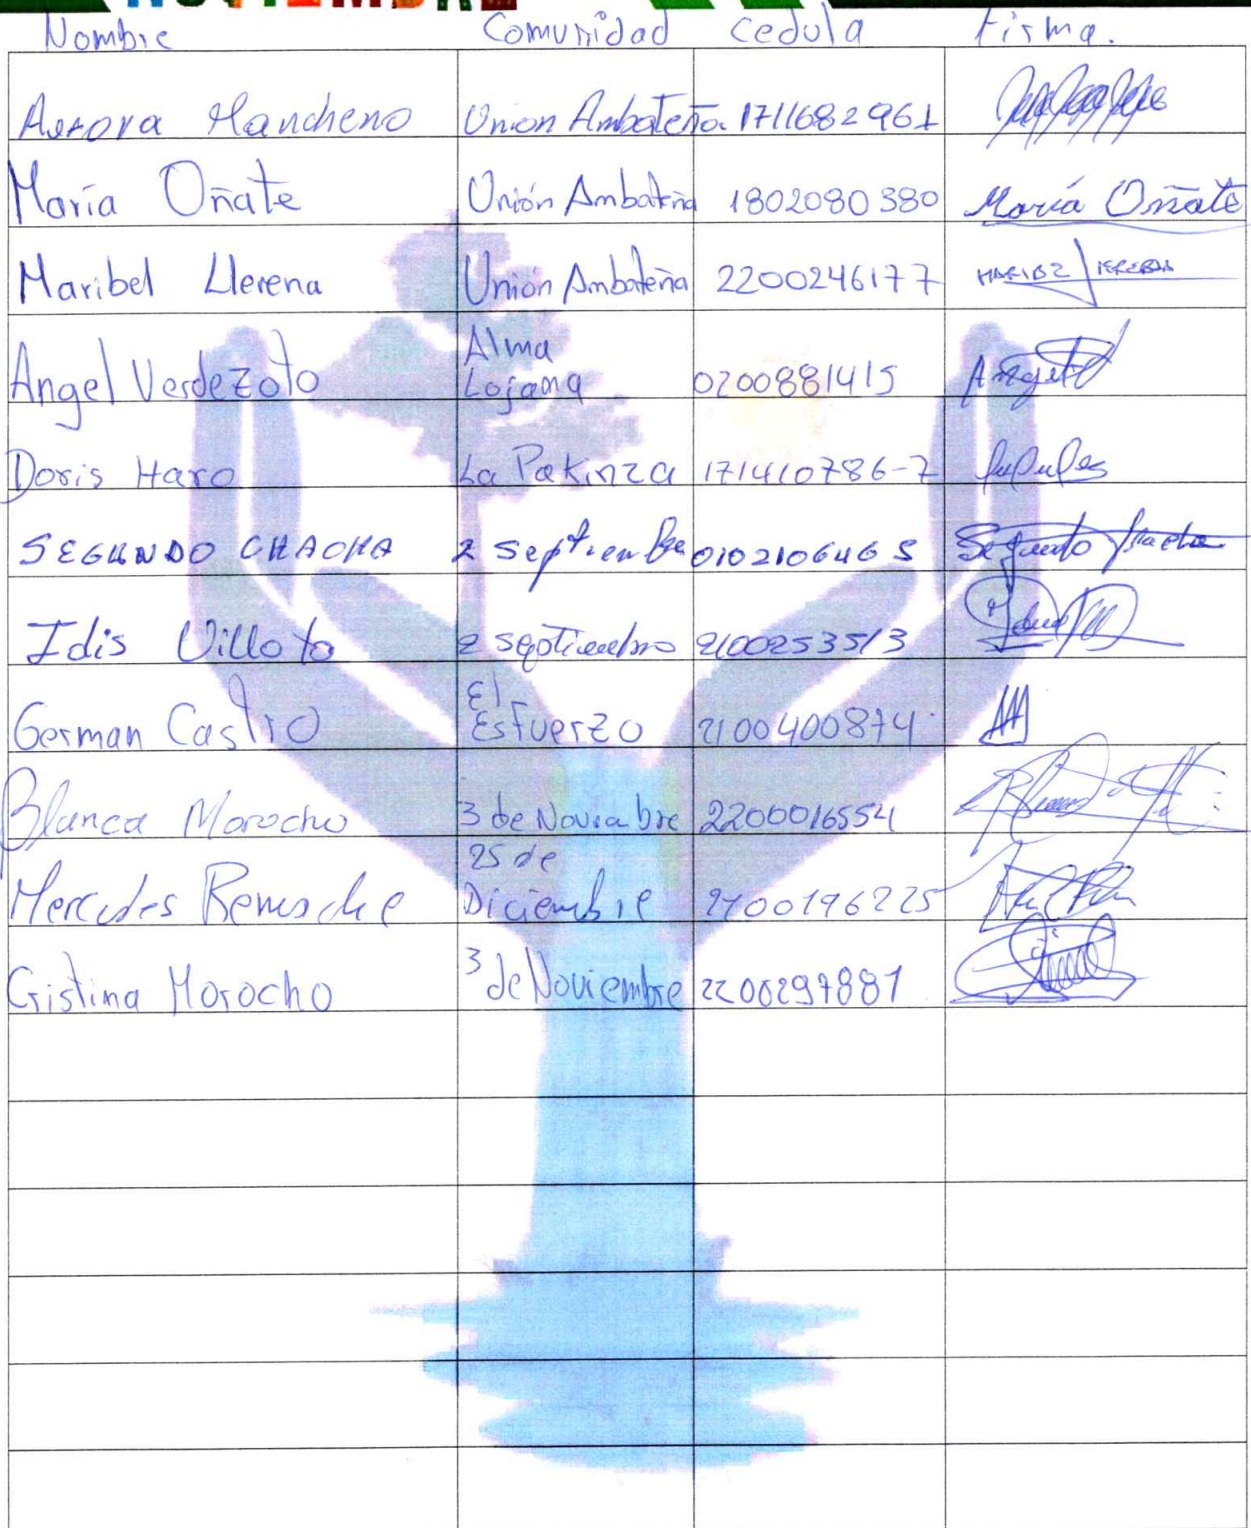 NOVIEMBRE
Nombre Comunidad cedula Firma.
Aurora Mancheno Unión Ambateña 1711682961
María Oñate Unión Ambateña 1802080380 María Oñate
Maribel Llerena Unión Ambateña 2200246177
Angel Verdezoto Alma Lojana 0200881415 Angel
Doris Haro La Pakinza 171410786-7
SEGUNDO CHACHA 2 Septiembre 0102106465 Segundo
Idis Villota 2 septiembre 2100253513
German Castro El Esfuerzo 2100400874
Blanca Morocho 3 de Noviabre 2200016554
Mercedes Remache 25 de Diciembre 2100196225
Cristina Morocho 3 de Noviembre 2200297881